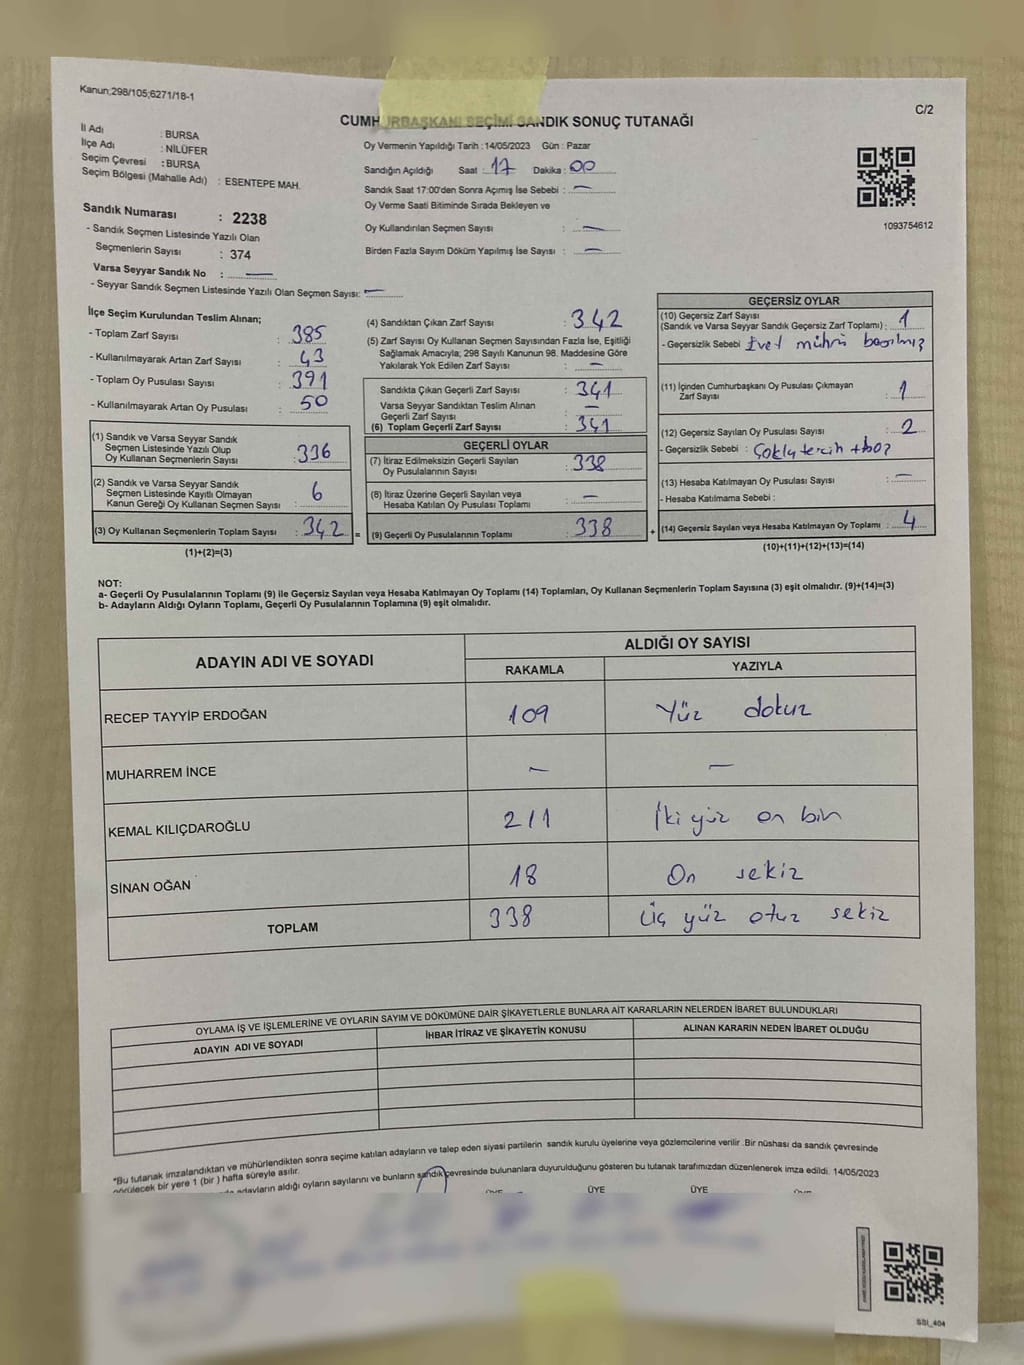 Kanun;298/105;6271/18-1
C/2
CUMHURBAŞKANI SEÇİMİ SANDIK SONUÇ TUTANAĞI
İl Adı : BURSA
İlçe Adı : NİLÜFER
Seçim Çevresi : BURSA
Seçim Bölgesi (Mahalle Adı) : ESENTEPE MAH.
Oy Vermenin Yapıldığı Tarih :14/05/2023 Gün : Pazar
Sandığın Açıldığı Saat : 17 Dakika : 00
Sandık Saat 17:00'den Sonra Açımış İse Sebebi : —
Oy Verme Saati Bitiminde Sırada Bekleyen ve
Oy Kullandırılan Seçmen Sayısı : —
Birden Fazla Sayım Döküm Yapılmış İse Sayısı : —
1093754612
Sandık Numarası : 2238
- Sandık Seçmen Listesinde Yazılı Olan
Seçmenlerin Sayısı : 374
Varsa Seyyar Sandık No : —
- Seyyar Sandık Seçmen Listesinde Yazılı Olan Seçmen Sayısı: —
İlçe Seçim Kurulundan Teslim Alınan;
- Toplam Zarf Sayısı : 385
- Kullanılmayarak Artan Zarf Sayısı : 43
- Toplam Oy Pusulası Sayısı : 391
- Kullanılmayarak Artan Oy Pusulası : 50
(1) Sandık ve Varsa Seyyar Sandık
Seçmen Listesinde Yazılı Olup
Oy Kullanan Seçmenlerin Sayısı : 336
(2) Sandık ve Varsa Seyyar Sandık
Seçmen Listesinde Kayıtlı Olmayan
Kanun Gereği Oy Kullanan Seçmen Sayısı : 6
(3) Oy Kullanan Seçmenlerin Toplam Sayısı : 342 =
(1)+(2)=(3)
(4) Sandıktan Çıkan Zarf Sayısı : 342
(5) Zarf Sayısı Oy Kullanan Seçmen Sayısından Fazla İse, Eşitliği
Sağlamak Amacıyla; 298 Sayılı Kanunun 98. Maddesine Göre
Yakılarak Yok Edilen Zarf Sayısı : —
Sandıkta Çıkan Geçerli Zarf Sayısı : 341
Varsa Seyyar Sandıktan Teslim Alınan
Geçerli Zarf Sayısı : —
(6) Toplam Geçerli Zarf Sayısı : 341
GEÇERLİ OYLAR
(7) İtiraz Edilmeksizin Geçerli Sayılan
Oy Pusulalarının Sayısı : 338
(8) İtiraz Üzerine Geçerli Sayılan veya
Hesaba Katılan Oy Pusulası Toplamı : —
(9) Geçerli Oy Pusulalarının Toplamı : 338 +
GEÇERSİZ OYLAR
(10) Geçersiz Zarf Sayısı
(Sandık ve Varsa Seyyar Sandık Geçersiz Zarf Toplamı) : 1
- Geçersizlik Sebebi : Evet mührü basılmış
(11) İçinden Cumhurbaşkanı Oy Pusulası Çıkmayan
Zarf Sayısı : 1
(12) Geçersiz Sayılan Oy Pusulası Sayısı : 2
- Geçersizlik Sebebi : Çoklu tercih
(13) Hesaba Katılmayan Oy Pusulası Sayısı : —
- Hesaba Katılmama Sebebi :
(14) Geçersiz Sayılan veya Hesaba Katılmayan Oy Toplamı : 4
(10)+(11)+(12)+(13)=(14)
NOT:
a- Geçerli Oy Pusulalarının Toplamı (9) ile Geçersiz Sayılan veya Hesaba Katılmayan Oy Toplamı (14) Toplamları, Oy Kullanan Seçmenlerin Toplam Sayısına (3) eşit olmalıdır. (9)+(14)=(3)
b- Adayların Aldığı Oyların Toplamı, Geçerli Oy Pusulalarının Toplamına (9) eşit olmalıdır.
ADAYIN ADI VE SOYADI ALDIĞI OY SAYISI
RAKAMLA YAZIYLA
RECEP TAYYİP ERDOĞAN 109 Yüz dokuz
MUHARREM İNCE — —
KEMAL KILIÇDAROĞLU 211 İki yüz on bir
SİNAN OĞAN 18 On sekiz
TOPLAM 338 Üç yüz otuz sekiz
OYLAMA İŞ VE İŞLEMLERİNE VE OYLARIN SAYIM VE DÖKÜMÜNE DAİR ŞİKAYETLERLE BUNLARA AİT KARARLARIN NELERDEN İBARET BULUNDUKLARI
ADAYIN ADI VE SOYADI İHBAR İTİRAZ VE ŞİKAYETİN KONUSU ALINAN KARARIN NEDEN İBARET OLDUĞU
*Bu tutanak imzalandıktan ve mühürlendikten sonra seçime katılan adayların ve talep eden siyasi partilerin sandık kurulu üyelerine veya gözlemcilerine verilir .Bir nüshası da sandık çevresinde
görülecek bir yere 1 (bir ) hafta süreyle asılır.
adayların aldığı oyların sayılarını ve bunların sandık çevresinde bulunanlara duyurulduğunu gösteren bu tutanak tarafımızdan düzenlenerek imza edildi. 14/05/2023
ÜYE ÜYE ÜYE
SSI_404